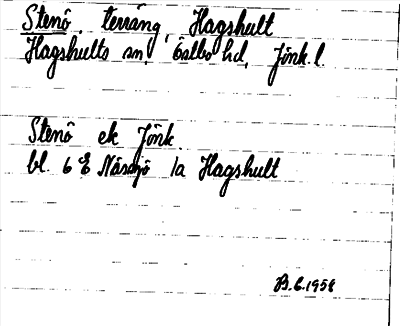 Stenö, terräng, Hagshult
Hagshults sn, Östbo hd, Jönk. l.
Stenö ek Jönk.
bl. 6 E Nässjö 1a Hagshult
B.E. 1956